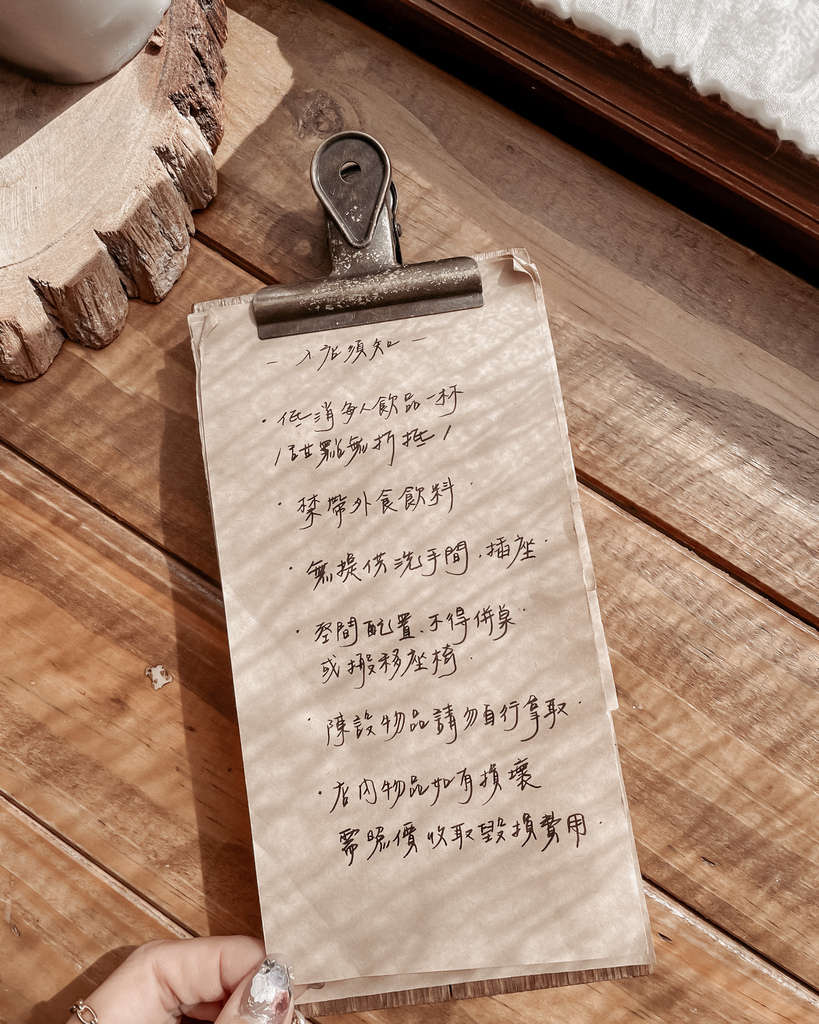 - 入店須知 -
· 低消每人飲品一杯
/甜點無折抵/
· 禁帶外食飲料.
· 無提供洗手間.插座.
· 空間配置.不得併桌.
或搬移座椅.
· 陳設物品請勿自行拿取.
· 店內物品如有損壞
需照價收取毀損費用.